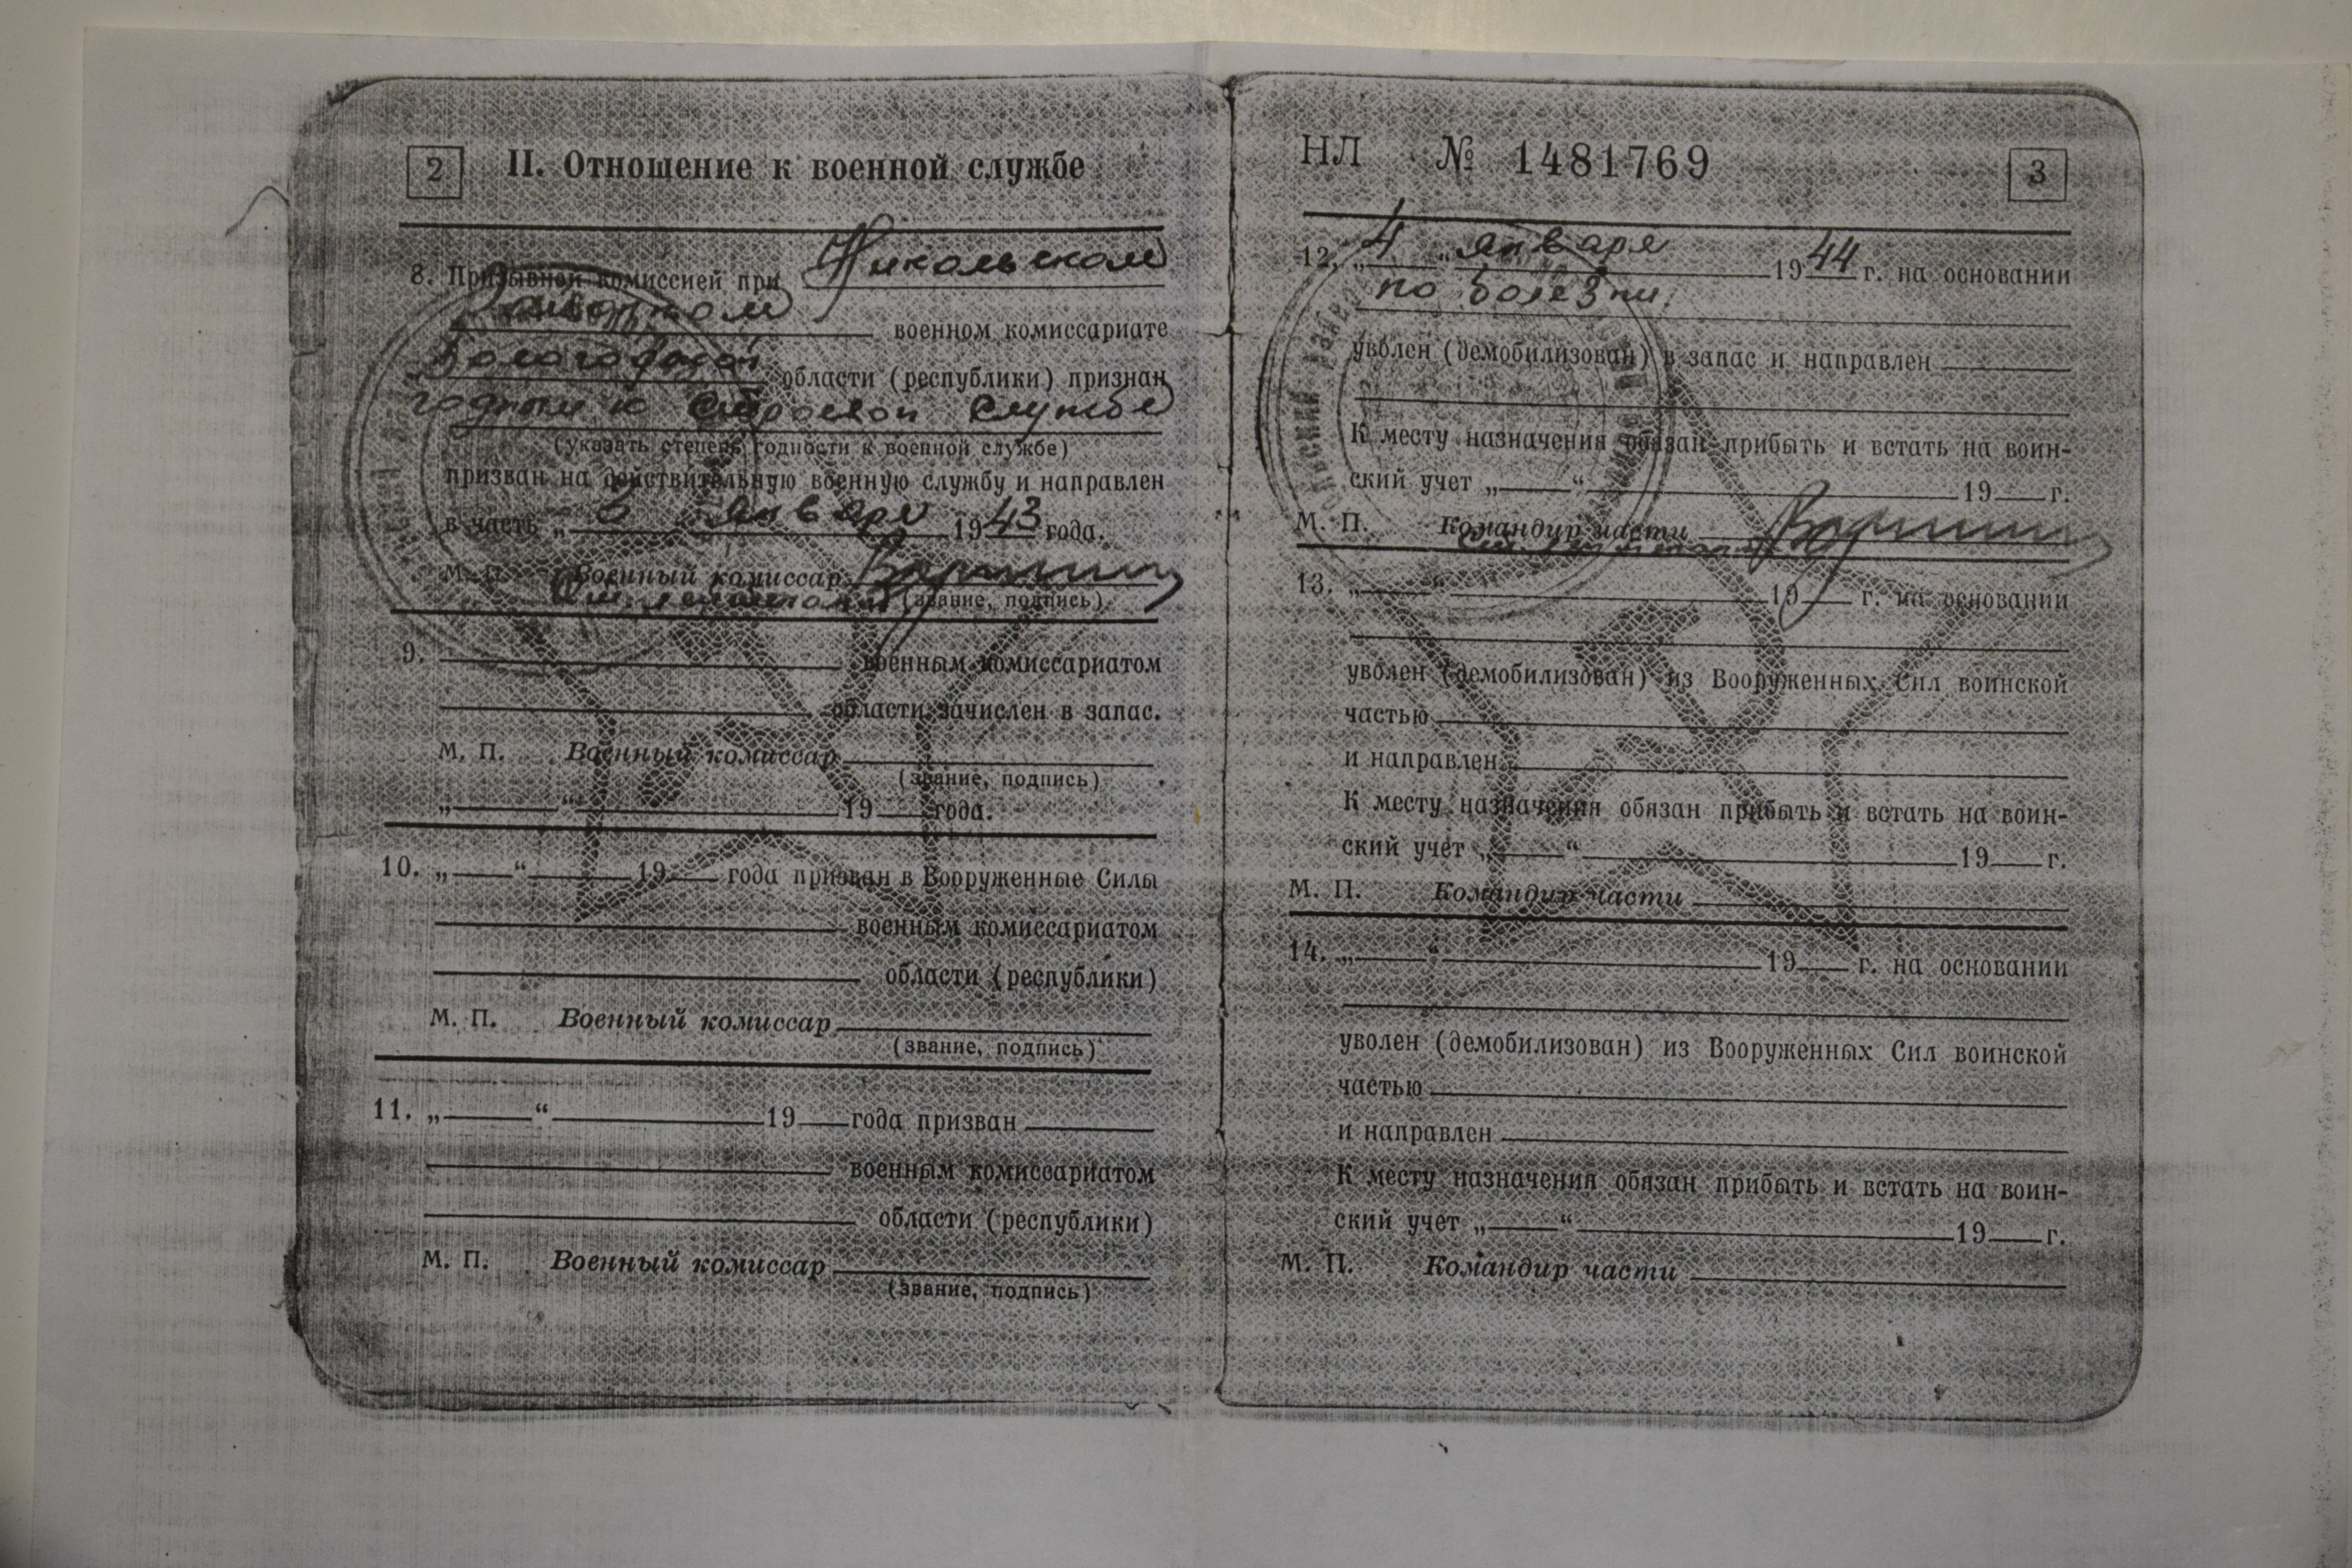 2
II. Отношение к военной службе
8. Призывной комиссией при Никольском
военном комиссариате
Вологодской области (республики) признан
годным к строевой службе
(указать степень годности к военной службе)
призван на действительную военную службу и направлен
в часть „ “ января 1943 года.
М. П. Военный комиссар
ст. лейтенант (звание, подпись)
9. военным комиссариатом
области зачислен в запас.
М. П. Военный комиссар
(звание, подпись)
„ “ 19 года.
10. „ “ 19 года призван в Вооруженные Силы
военным комиссариатом
области (республики)
М. П. Военный комиссар
(звание, подпись)
11. „ “ 19 года призван
военным комиссариатом
области (республики)
М. П. Военный комиссар
(звание, подпись)
НЛ № 1481769
3
12. „4“ января 1944 г. на основании
по болезни.
уволен (демобилизован) в запас и направлен
К месту назначения обязан прибыть и встать на воин-
ский учет „ “ 19 г.
М. П. Командир части
13. „ “ 19 г. на основании
уволен (демобилизован) из Вооруженных Сил воинской
частью
и направлен
К месту назначения обязан прибыть и встать на воин-
ский учет „ “ 19 г.
М. П. Командир части
14. „ “ 19 г. на основании
уволен (демобилизован) из Вооруженных Сил воинской
частью
и направлен
К месту назначения обязан прибыть и встать на воин-
ский учет „ “ 19 г.
М. П. Командир части